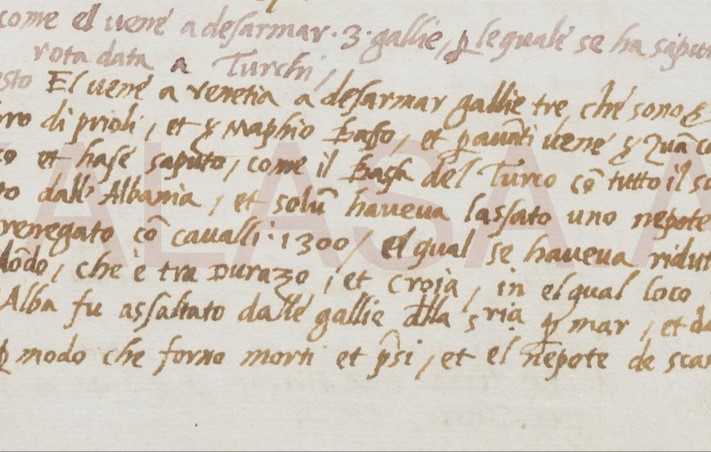 come el uené a desarmar · 3 · gallie, ꝑ lequale se ha saput
rota data a Turchi,
esto El uené a venetia a desarmar gallie tre, ché sono
ro di prioli, et Maphio Basso, et uené
et hasé saputo, come il Bassa del Turco cõ tutto il s
to dall'Albania, et solũ haueua lassato uno nepote
renegato cõ caualli · 1300, elqual se haueua ridut
Mõdo, che è tra Durazo, et Croia, in elqual loco
Alba fu assaltato dalle gallie dlla sria ꝑ mar, et da
ꝑ modo che forno morti et p̃si, et el nepote de scan